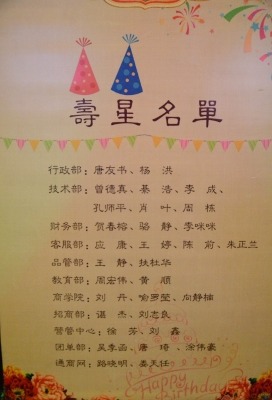 壽星名單
行政部：唐友书、杨 洪
技术部：曾德真、綦 浩、李 成、
孔师平、肖 叶、周 栋
财务部：贺春榕、骆 静、李咪咪
客服部：应 康、王 婷、陈 前、朱正兰
品管部：王 静、扶杜华
教育部：周宏伟、黄 顺
商学院：刘 丹、哈罗莹、向静楠
招商部：谌 杰、刘志良
营管中心：徐 芳、刘 鑫
团单部：吴李函、唐 琦、涂伟豪
通商网：路晓明、娄天任
Happy
Birthday